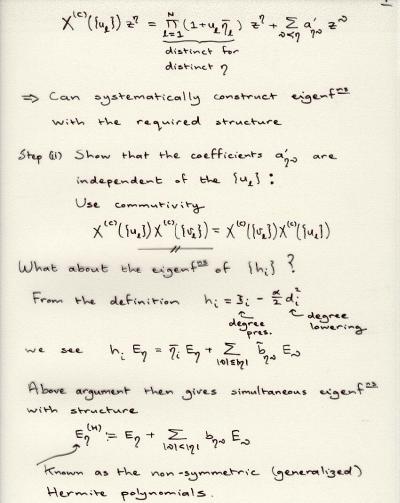 X^(C)({u_l}) z^η = ∏_{l=1}^{N} (1+u_l η̄_l) z^η + Σ_{ν<η} a'_{ην} z^ν
distinct for
distinct η
⇒ Can systematically construct eigenf^ns
with the required structure
Step (ii) Show that the coefficients a'_{ην} are
independent of the {u_l} :
Use commutivity
X^(C)({u_l}) X^(C)({v_l}) = X^(C)({v_l}) X^(C)({u_l})
What about the eigenf^ns of {h_i} ?
From the definition h_i = ξ_i - α/2 d_i^2
degree
pres.
degree
lowering
we see h_i E_η = η̄_i E_η + Σ_{|ν|<|η|} b̃_{ην} E_ν
Above argument then gives simultaneous eigenf^ns
with structure
E_η^(H) := E_η + Σ_{|ν|<|η|} b_{ην} E_ν
Known as the non-symmetric (generalized)
Hermite polynomials.